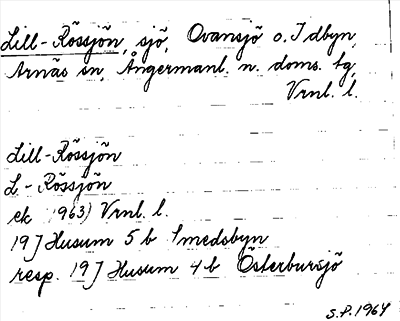 Lill-Rössjön, sjö, Ovansjö o. Idbyn,
Arnäs sn, Ångermanl. n. doms. tg,
Vrnl. l.
Lill-Rössjön
L.-Rössjön
ek 1963) Vrnl. l.
19J Husum 5b Smedsbyn
resp. 19J Husum 4b Österbursjö
S.P. 1964